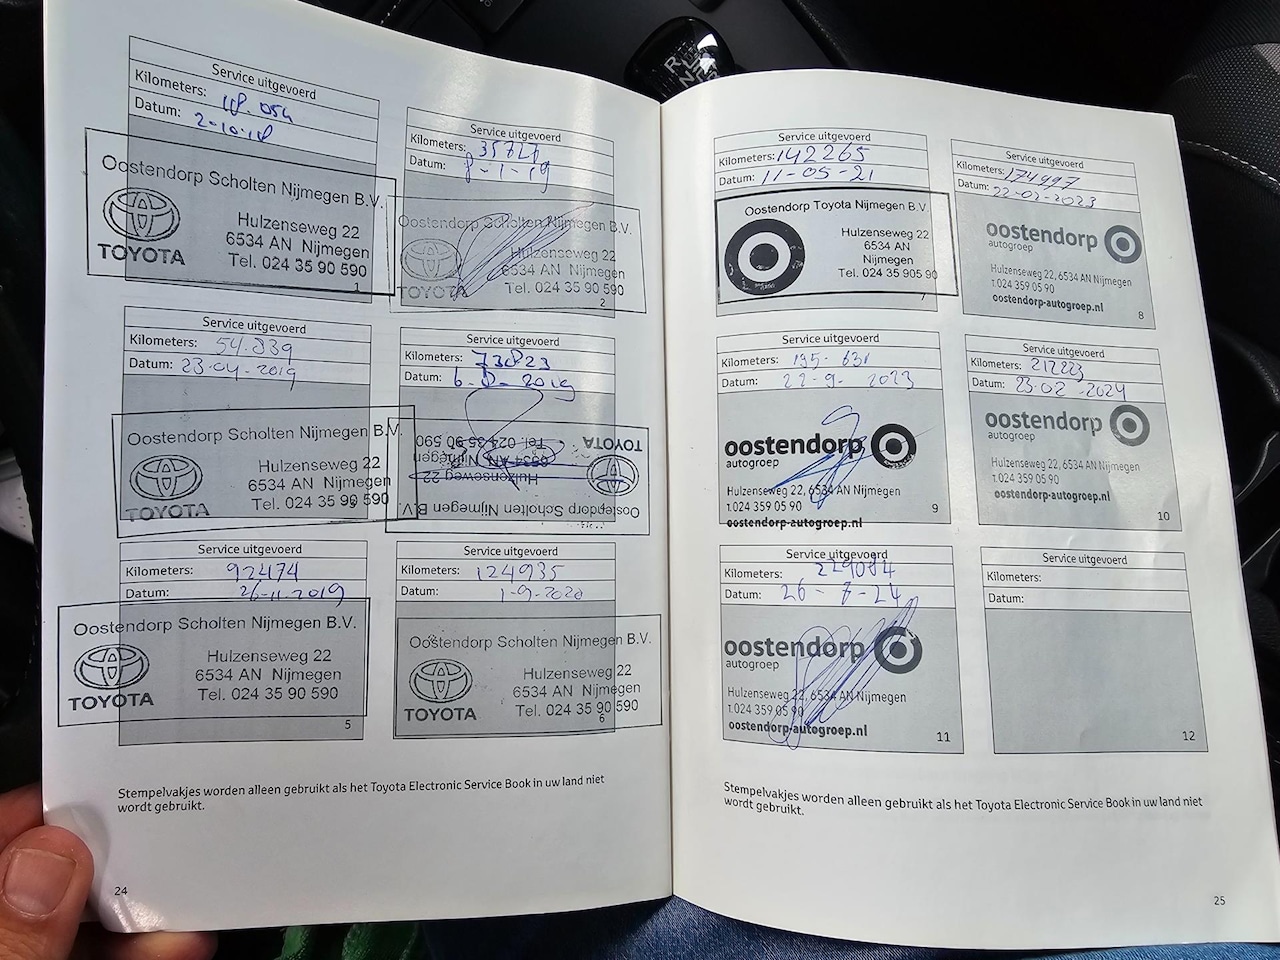 Service uitgevoerd
Kilometers: 18.054
Datum: 2-10-18
Oostendorp Scholten Nijmegen B.V.
TOYOTA
Hulzenseweg 22
6534 AN Nijmegen
Tel. 024 35 90 590
1
Service uitgevoerd
Kilometers: 35727
Datum: 8-1-19
Oostendorp Scholten Nijmegen B.V.
TOYOTA
Hulzenseweg 22
6534 AN Nijmegen
Tel. 024 35 90 590
2
Service uitgevoerd
Kilometers: 54.839
Datum: 23-04-2019
Oostendorp Scholten Nijmegen B.V.
TOYOTA
Hulzenseweg 22
6534 AN Nijmegen
Tel. 024 35 90 590
Service uitgevoerd
Kilometers: 73823
Datum: 6-8-2019
Oostendorp Scholten Nijmegen B.V.
TOYOTA
Hulzenseweg 22
6534 AN Nijmegen
Tel. 024 35 90 590
Service uitgevoerd
Kilometers: 92474
Datum: 26-11-2019
Oostendorp Scholten Nijmegen B.V.
TOYOTA
Hulzenseweg 22
6534 AN Nijmegen
Tel. 024 35 90 590
5
Service uitgevoerd
Kilometers: 124935
Datum: 1-9-2020
Oostendorp Scholten Nijmegen B.V.
TOYOTA
Hulzenseweg 22
6534 AN Nijmegen
Tel. 024 35 90 590
6
Stempelvakjes worden alleen gebruikt als het Toyota Electronic Service Book in uw land niet
wordt gebruikt.
24
Service uitgevoerd
Kilometers: 142265
Datum: 11-05-21
Oostendorp Toyota Nijmegen B.V.
Hulzenseweg 22
6534 AN
Nijmegen
Tel. 024 35 905 90
7
Service uitgevoerd
Kilometers: 174997
Datum: 22-02-2023
oostendorp
autogroep
Hulzenseweg 22, 6534 AN Nijmegen
t.024 359 05 90
oostendorp-autogroep.nl
8
Service uitgevoerd
Kilometers: 195-631
Datum: 22-9-2023
oostendorp
autogroep
Hulzenseweg 22, 6534 AN Nijmegen
t.024 359 05 90
oostendorp-autogroep.nl
9
Service uitgevoerd
Kilometers: 212223
Datum: 23-02-2024
oostendorp
autogroep
Hulzenseweg 22, 6534 AN Nijmegen
t.024 359 05 90
oostendorp-autogroep.nl
10
Service uitgevoerd
Kilometers: 229084
Datum: 26-7-24
oostendorp
autogroep
Hulzenseweg 22, 6534 AN Nijmegen
t.024 359 05 90
oostendorp-autogroep.nl
11
Service uitgevoerd
Kilometers:
Datum:
12
Stempelvakjes worden alleen gebruikt als het Toyota Electronic Service Book in uw land niet
wordt gebruikt.
25